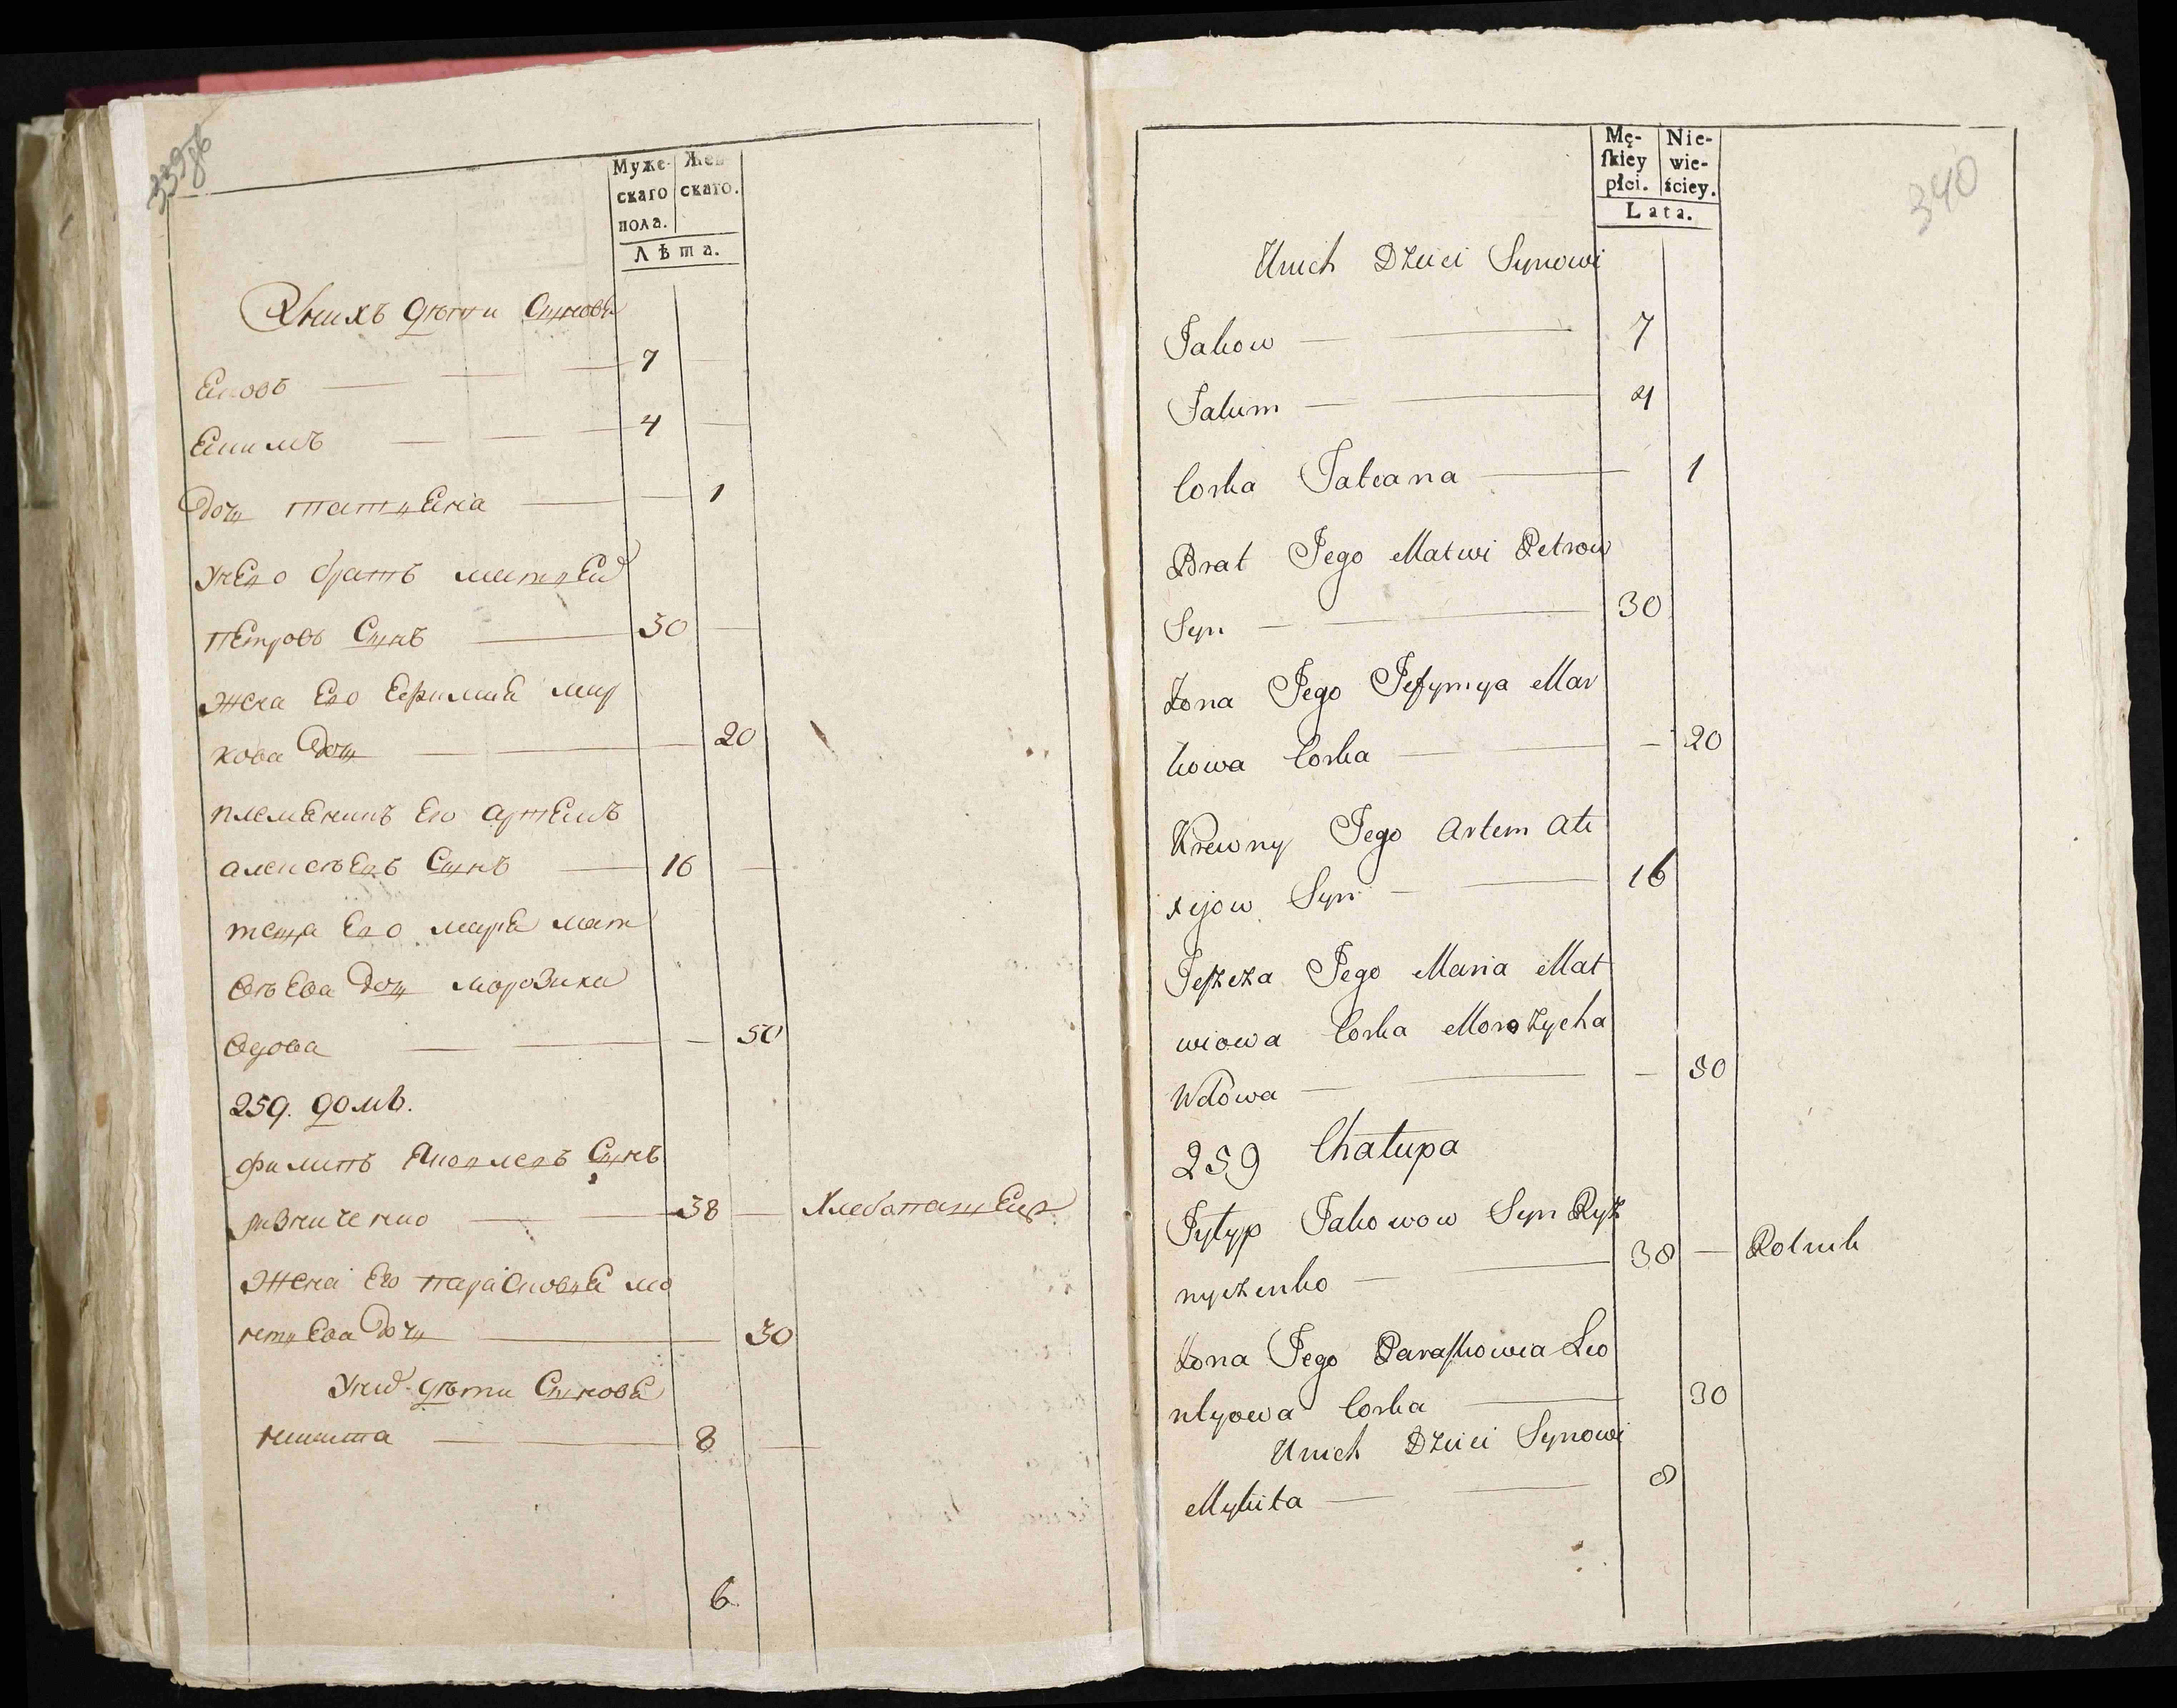 339
86
Муже- Жен-
скаго скаго.
пола.
Лѣта.
Унихъ дѣти Сынове
Яковъ 7
Якимъ 4
дочь татьяна 1
унего братъ матвей
петровъ Сынъ 30
жена Его Ефимия мар
кова дочь 20
племяникъ Его артемъ
алексѣевъ Сынъ 16
теща Его маря мат
вѣева дочь морозиха
вдова 50
259. домъ.
филипъ яковлевъ Сынъ
ризниченко 38 хлебопашецъ
жена Его парасковя ле
онтьева дочь 30
Уних дѣти Сынове
никита 8
6
340
Mę- Nie-
ſkiey wie-
płci. ściey.
Lata.
Unich Dzieci Synowi
Jakow 7
Jakim 4
Corka Tateana 1
Brat Jego Matwi Petrow
Syn 30
Zona Jego Jefymya Mar
kowa Corka 20
Krewny Jego Artem Ale
xijow Syn 16
Teszcza Jego Maria Mat
wiowa Corka Morozycha
Wdowa 50
259 Chałupa
Fylyp Jakowow Syn Ryz
nyczenko 38 Rolnik
Zona Jego Paraskowia Leo
ntyowa Corka 30
Unich Dzieci Synowi
Mykita 8